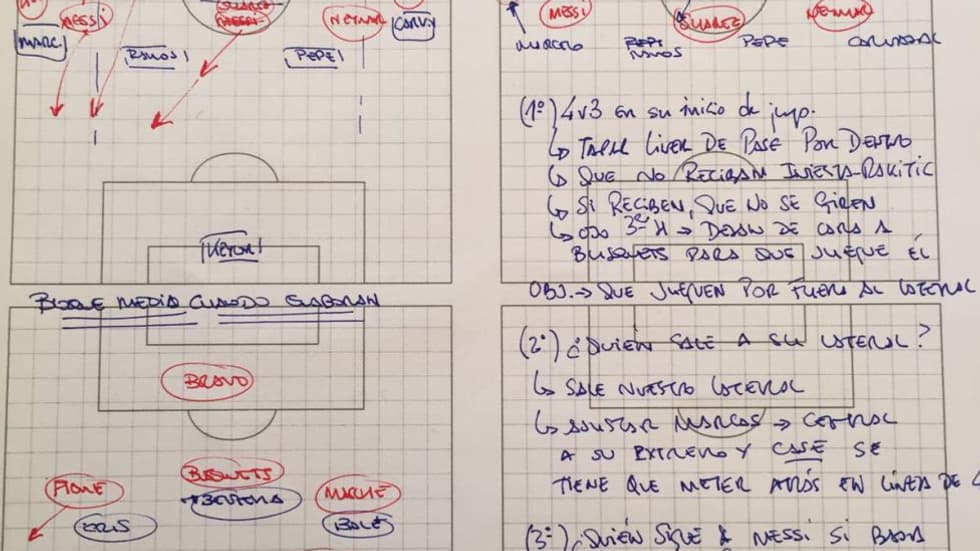 MESSI
SUAREZ
NEYMAR
CARVY
MARC
RAMOS
PEPE
KEYLOR
BLOQUE MEDIO CUANDO ELABORAN
BRAVO
BUSQUETS
BENZEMA
PIQUE
MACHE
CRIS
BALE
MESSI
SUAREZ
NEYMAR
MARCELO
PEPE
RAMOS
PEPE
CARVAJAL
(1º) 4v3 en su inicio de juego.
↳ TAPAR LINEA DE PASE POR DENTRO
↳ QUE NO RECIBAN INIESTA-RAKITIC
↳ SI RECIBEN, QUE NO SE GIREN
↳ OJO 3er H → DEJAN DE CARA A
BUSQUETS PARA QUE JUEGUE ÉL
OBJ. → QUE JUEGUEN POR FUERA AL LATERAL
(2º) ¿QUIÉN SALE A SU LATERAL?
↳ SALE NUESTRO LATERAL
↳ AJUSTAR MARCAS → CENTRAL
A SU EXTREMO Y CASE SE
TIENE QUE METER ATRÁS EN LÍNEA DE 4
(3º) ¿QUIÉN SIGUE A MESSI SI BAJA